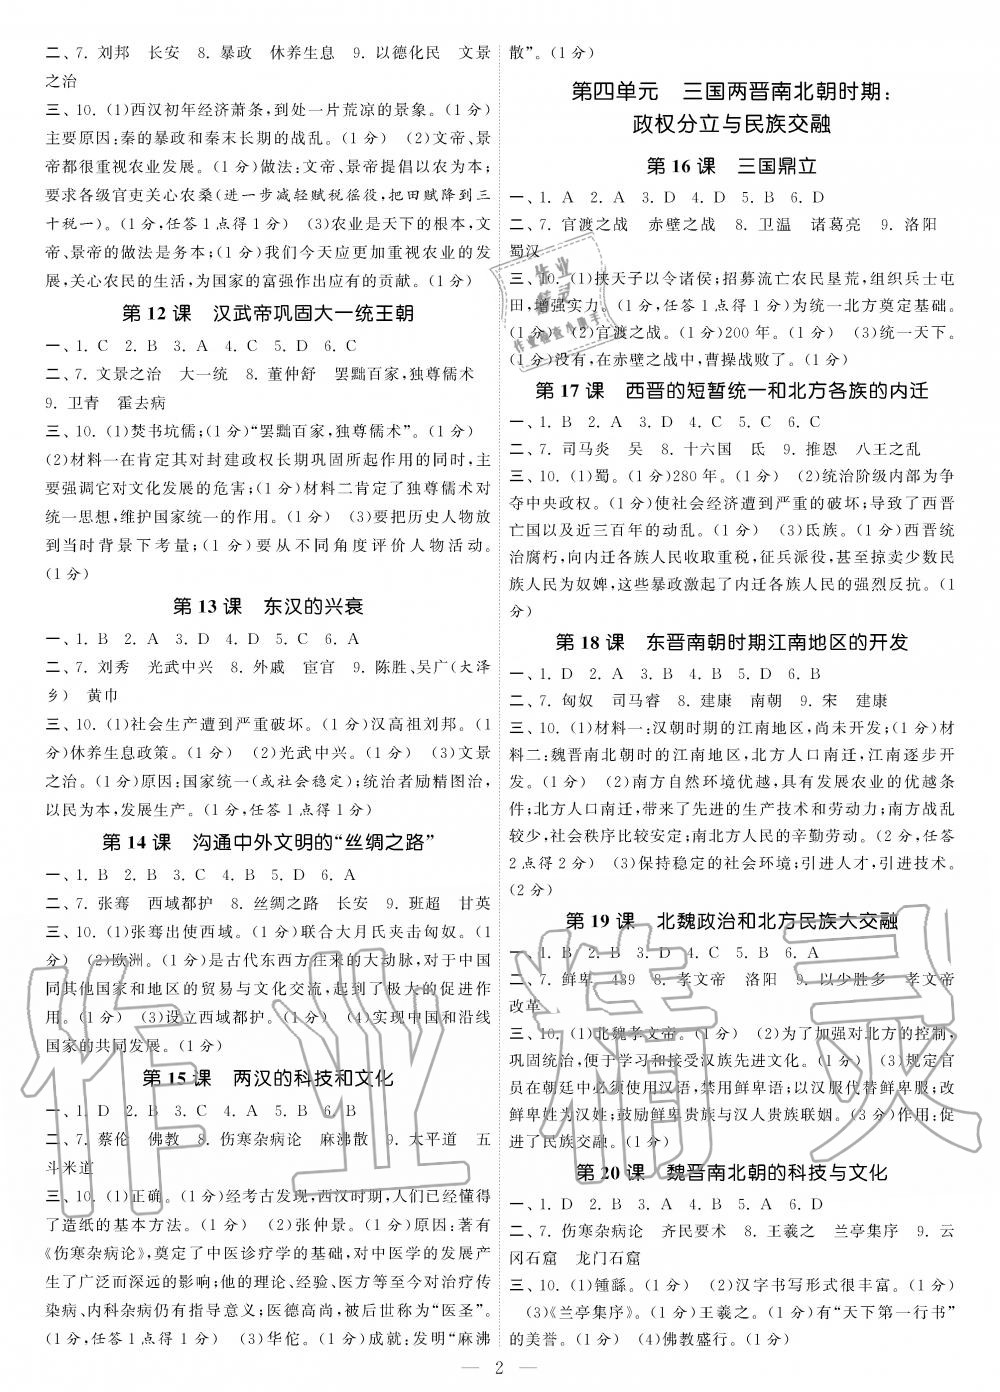 二、7. 刘邦 长安 8. 暴政 休养生息 9. 以德化民 文景
之治
三、10. (1)西汉初年经济萧条,到处一片荒凉的景象。(1分)
主要原因:秦的暴政和秦末长期的战乱。(1分) (2)文帝、景
帝都很重视农业发展。(1分)做法:文帝、景帝提倡以农为本;
要求各级官吏关心农桑(进一步减轻赋税徭役,把田赋降到三
十税一)。(1分,任答1点得1分) (3)农业是天下的根本,文
帝、景帝的做法是务本;(1分)我们今天应更加重视农业的发
展,关心农民的生活,为国家的富强作出应有的贡献。(1分)
第12课 汉武帝巩固大一统王朝
一、1. C 2. B 3. A 4. C 5. C 6. C
二、7. 文景之治 大一统 8. 董仲舒 罢黜百家,独尊儒术
9. 卫青 霍去病
三、10. (1)焚书坑儒;(1分)“罢黜百家,独尊儒术”。(1分)
(2)材料一在肯定其对封建政权长期巩固所起作用的同时,主
要强调它对文化发展的危害;(1分)材料二肯定了独尊儒术对
统一思想,维护国家统一的作用。(1分) (3)要把历史人物放
到当时背景下考量;(1分)要从不同角度评价人物活动。
(1分)
第13课 东汉的兴衰
一、1. B 2. A 3. D 4. D 5. C 6. A
二、7. 刘秀 光武中兴 8. 外戚 宦官 9. 陈胜、吴广(大泽
乡) 黄巾
三、10. (1)社会生产遭到严重破坏。(1分)汉高祖刘邦。(1
分)休养生息政策。(1分) (2)光武中兴。(1分) (3)文景
之治。(1分)原因:国家统一(或社会稳定);统治者励精图治,
以民为本,发展生产。(1分,任答1点得1分)
第14课 沟通中外文明的“丝绸之路”
一、1. B 2. B 3. B 4. C 5. D 6. A
二、7. 张骞 西域都护 8. 丝绸之路 长安 9. 班超 甘英
三、10. (1)张骞出使西域。(1分)联合大月氏夹击匈奴。(1
分) (2)欧洲。(1分)是古代东西方往来的大动脉,对于中国
同其他国家和地区的贸易与文化交流,起到了极大的促进作
用。(1分) (3)设立西域都护。(1分) (4)实现中国和沿线
国家的共同发展。(1分)
第15课 两汉的科技和文化
一、1. D 2. B 3. C 4. A 5. B 6. B
二、7. 蔡伦 佛教 8. 伤寒杂病论 麻沸散 9. 太平道 五
斗米道
三、10. (1)正确。(1分)经考古发现,西汉时期,人们已经懂得
了造纸的基本方法。(1分) (2)张仲景。(1分)原因:著有
《伤寒杂病论》,奠定了中医诊疗学的基础,对中医学的发展产
生了广泛而深远的影响;他的理论、经验、医方等至今对治疗传
染病、内科杂病仍有指导意义;医德高尚,被后世称为“医圣”。
(1分,任答1点得1分) (3)华佗。(1分)成就:发明“麻沸
散”。(1分)
第四单元 三国两晋南北朝时期:
政权分立与民族交融
第16课 三国鼎立
一、1. A 2. A 3. D 4. D 5. B 6. D
二、7. 官渡之战 赤壁之战 8. 卫温 诸葛亮 9. 洛阳
蜀汉
三、10. (1)挟天子以令诸侯;招募流亡农民垦荒,组织兵士屯
田,增强实力。(1分,任答1点得1分)为统一北方奠定基础。
(1分) (2)官渡之战。(1分)200年。(1分) (3)统一天下。
(1分)没有,在赤壁之战中,曹操战败了。(1分)
第17课 西晋的短暂统一和北方各族的内迁
一、1. B 2. A 3. D 4. C 5. C 6. C
二、7. 司马炎 吴 8. 十六国 氐 9. 推恩 八王之乱
三、10. (1)蜀。(1分)280年。(1分) (2)统治阶级内部为争
夺中央政权。(1分)使社会经济遭到严重的破坏;导致了西晋
亡国以及近三百年的动乱。(1分) (3)氐族。(1分)西晋统
治腐朽,向内迁各族人民收取重税,征兵派役,甚至掠卖少数民
族人民为奴婢,这些暴政激起了内迁各族人民的强烈反抗。(1
分)
第18课 东晋南朝时期江南地区的开发
一、1. D 2. A 3. B 4. B 5. D 6. B
二、7. 匈奴 司马睿 8. 建康 南朝 9. 宋 建康
三、10. (1)材料一:汉朝时期的江南地区,尚未开发;(1分)材
料二:魏晋南北朝时的江南地区,北方人口南迁,江南逐步开
发。(1分) (2)南方自然环境优越,具有发展农业的优越条
件;北方人口南迁,带来了先进的生产技术和劳动力;南方战乱
较少,社会秩序比较安定;南北方人民的辛勤劳动。(2分,任答
2点得2分) (3)保持稳定的社会环境;引进人才,引进技术。
(2分)
第19课 北魏政治和北方民族大交融
一、1. B 2. B 3. C 4. B 5. B 6. A
二、7. 鲜卑 439 8. 孝文帝 洛阳 9. 以少胜多 孝文帝
改革
三、10. (1)北魏孝文帝。(1分) (2)为了加强对北方的控制,
巩固统治,便于学习和接受汉族先进文化。(1分) (3)规定官
员在朝廷中必须使用汉语,禁用鲜卑语;以汉服代替鲜卑服;改
鲜卑姓为汉姓;鼓励鲜卑贵族与汉人贵族联姻。(3分)作用:促
进了民族交融。(1分)
第20课 魏晋南北朝的科技与文化
一、1. D 2. B 3. A 4. B 5. A 6. D
二、7. 伤寒杂病论 齐民要术 8. 王羲之 兰亭集序 9. 云
冈石窟 龙门石窟
三、10. (1)锺繇。(1分) (2)汉字书写形式很丰富。(1分)
(3)《兰亭集序》。(1分)王羲之。(1分)有“天下第一行书”
的美誉。(1分) (4)佛教盛行。(1分)
— 2 —
作业精灵